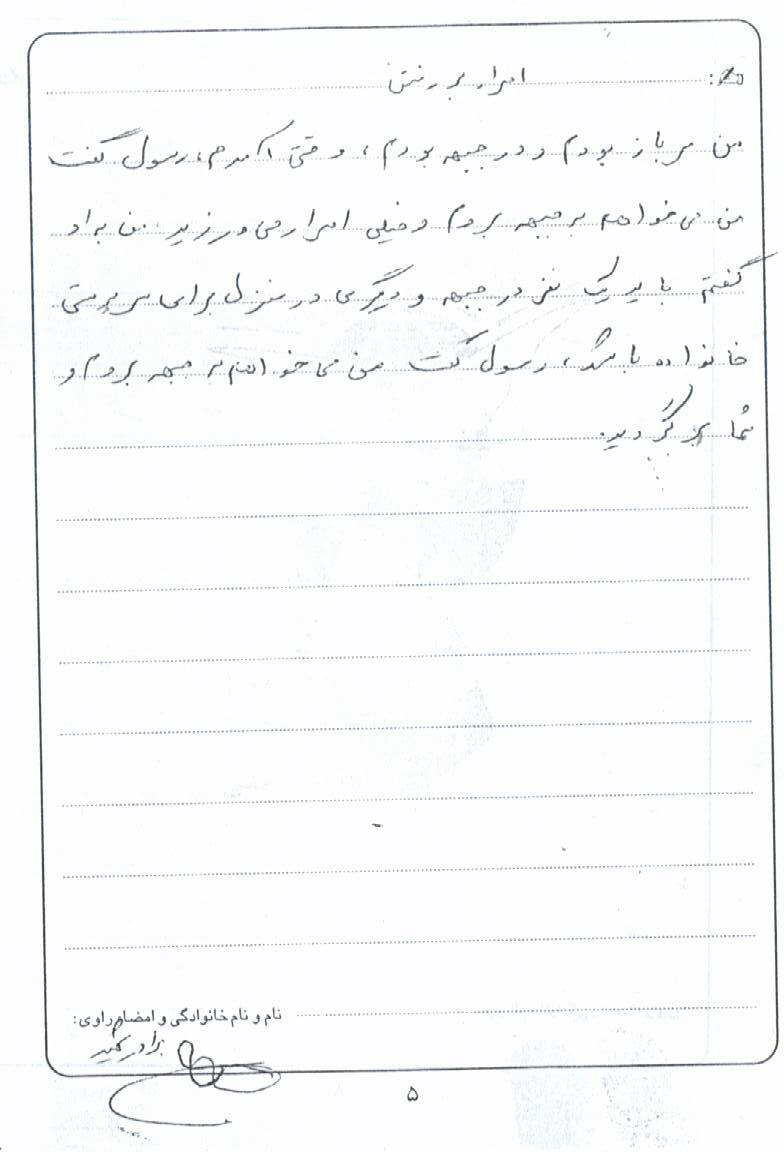 ✍: اصرار بر رفتن
من سرباز بودم و در جبهه بودم، وقتی آمدم، رسول گفت
من می‌خواهم به جبهه بروم و خیلی اصرار می‌ورزید. من به او
گفتم باید یک نفر در جبهه و دیگری در منزل برای سرپرستی
خانواده باشد، رسول گفت من می‌خواهم به جبهه بروم و
شما برگردید.
نام و نام خانوادگی و امضاء راوی:
برادر شهید
۵